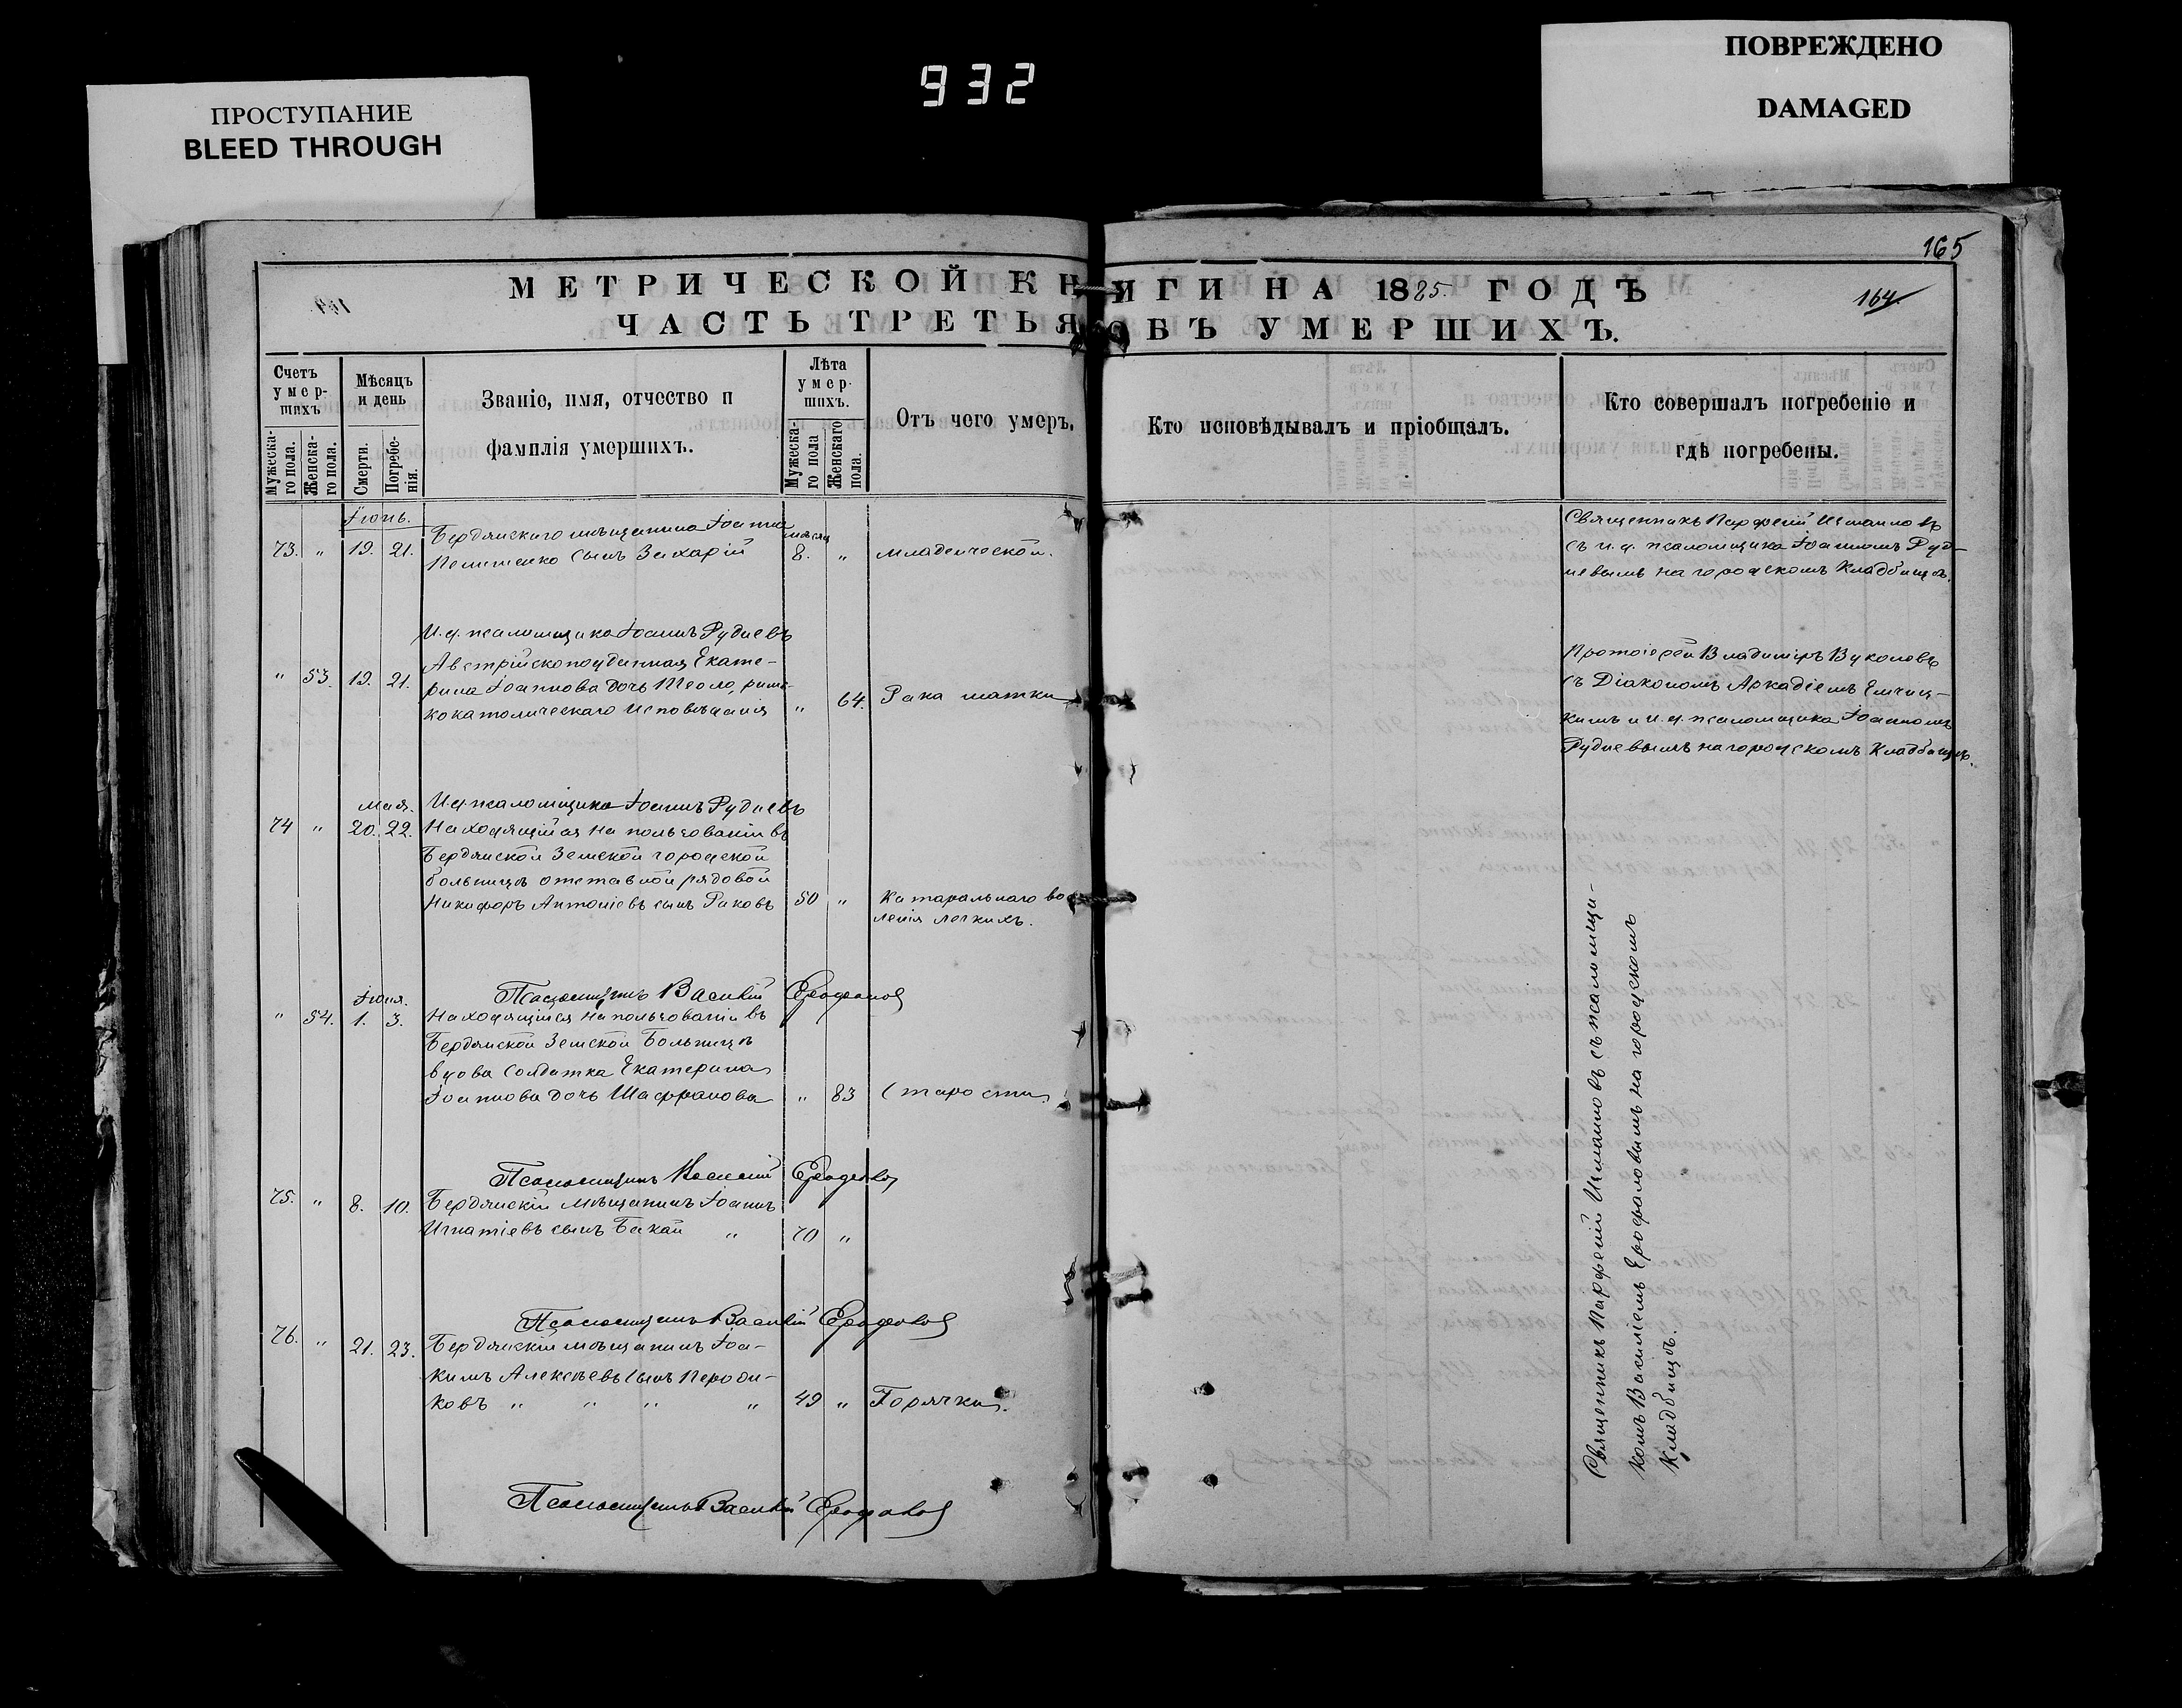 932
ПРОСТУПАНИЕ
BLEED THROUGH
ПОВРЕЖДЕНО
DAMAGED
165
МЕТРИЧЕСКОЙ КНИГИ НА 1885. ГОДЪ
164
ЧАСТЬ ТРЕТЬЯ ОБЪ УМЕРШИХЪ.
Счетъ умершихъ
Мужескаго пола.
Женскаго пола.
Мѣсяцъ и день
Смерти.
Погребенія.
Званіе, имя, отчество и
фамилія умершихъ.
Лѣта умершихъ.
Мужескаго пола
Женскаго пола.
Отъ чего умеръ.
Кто исповѣдывалъ и пріобщалъ.
Кто совершалъ погребеніе и
гдѣ погребены.
Іюнь.
73. " 19. 21.
Бердянскаго мѣщанина Іоанна
сынъ Захарій
мѣсяц
8. " младенческой.
Священникъ Парфеній Исмаиловъ
съ и. д. псаломщика Іоанномъ Руд-
невымъ на городскомъ Кладбищѣ.
И. д. псаломщика Іоаннъ Рудневъ
" 53. 19. 21.
Австрійскоподданная Екате-
рина Іоаннова дочь римс-
кокатолическаго исповѣданія
" 64. Рака матки
Протоіерей Владиміръ Вуколовъ
съ Діакономъ Аркадіемъ
кимъ и и. д. псаломщика Іоанномъ
Рудневымъ на городскомъ Кладбищѣ.
И. д. псаломщика Іоаннъ Рудневъ
мая.
74 " 20. 22.
Находящійся на пользованіи въ
Бердянской Земской городской
больницѣ отставной рядовой
Никифоръ Антоніевъ сынъ Раковъ
50 " Катаральнаго вос
ленія легкихъ.
Псаломщикъ Василій Ерофаловъ
Іюня.
" 54. 1. 3.
Находящаяся на пользованіи въ
Бердянской Земской Больницѣ
вдова Солдатка Екатерина
Іоаннова дочь Шафранова
" 83 Старости
Псаломщикъ Василій Ерофаловъ
75. " 8. 10.
Бердянскій мѣщанинъ Іоаннъ
Игнатіевъ сынъ Бакай "
70 "
Псаломщикъ Василій Ерофаловъ
76. " 21. 23.
Бердянскій мѣщанинъ Іоа-
кимъ Алексѣевъ сынъ Пероди-
ковъ " " " "
49 " Горячки.
Псаломщикъ Василій Ерофаловъ
Священникъ Парфеній Исмаиловъ съ псаломщи-
комъ Василіемъ Ерофаловымъ на городскомъ
Кладбищѣ.